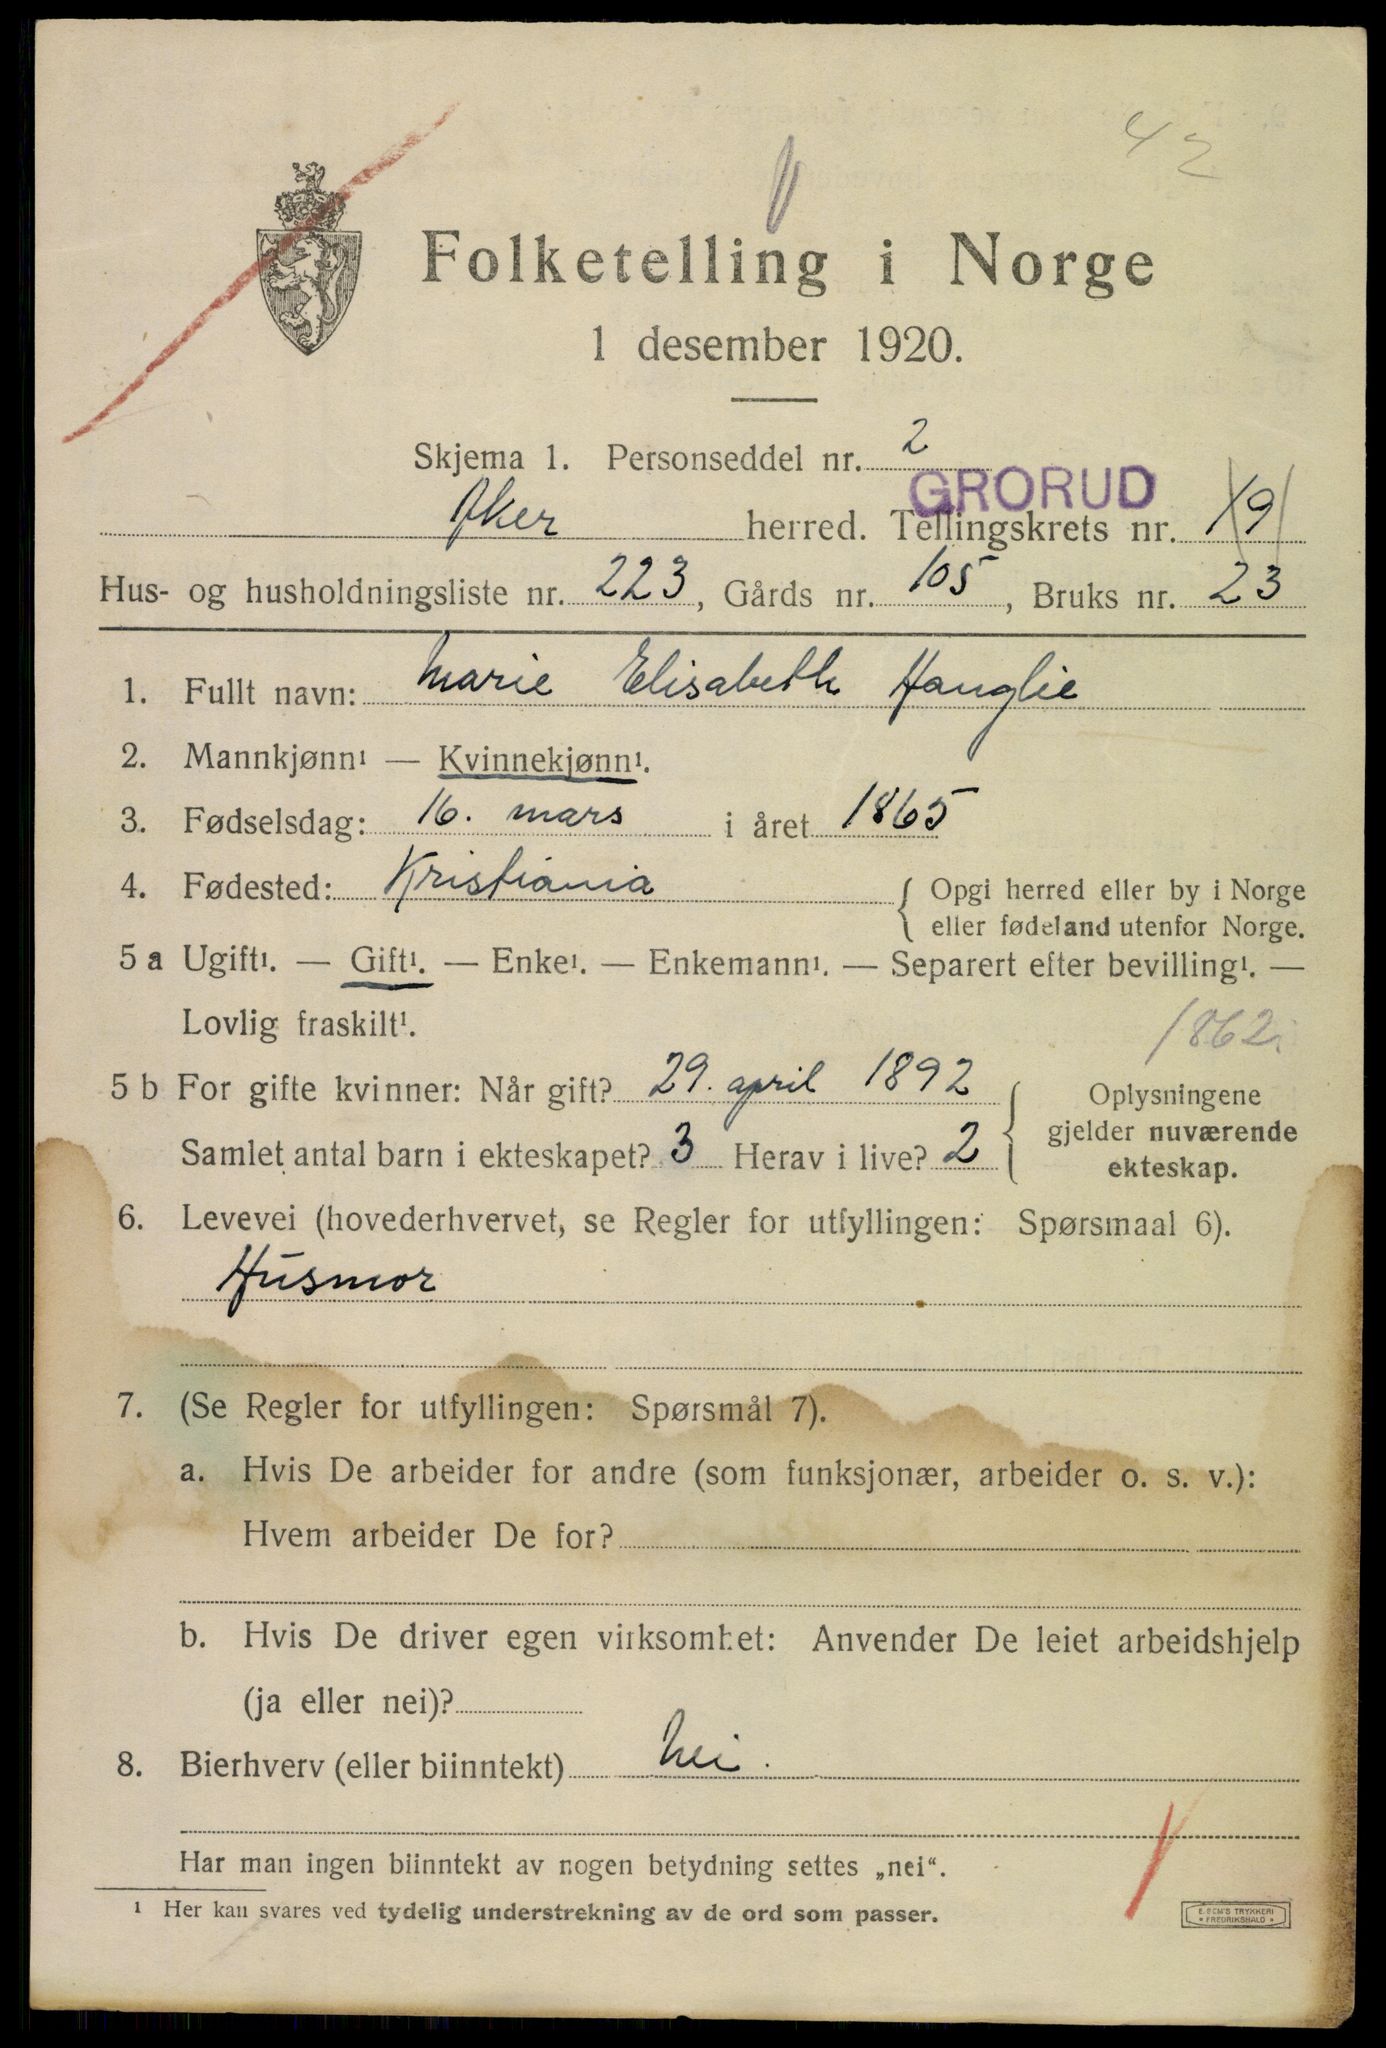 42
Folketelling i Norge
1 desember 1920.
Skjema 1. Personseddel nr. 2
GRORUD
Aker herred. Tellingskrets nr. 19
Hus- og husholdningsliste nr. 223, Gårds nr. 105, Bruks nr. 23
1. Fullt navn: Marie Elisabeth Hauglie
2. Mannkjønn¹ — Kvinnekjønn¹.
3. Fødselsdag: 16. mars i året 1865
4. Fødested: Kristiania { Opgi herred eller by i Norge
eller fødeland utenfor Norge.
5 a Ugift¹. — Gift¹. — Enke¹. — Enkemann¹. — Separert efter bevilling¹. —
Lovlig fraskilt¹.
1862
5 b For gifte kvinner: Når gift? 29. april 1892 { Oplysningene
gjelder nuværende
Samlet antal barn i ekteskapet? 3 Herav i live? 2
ekteskap.
6. Levevei (hovederhvervet, se Regler for utfyllingen: Spørsmaal 6).
Husmor
7. (Se Regler for utfyllingen: Spørsmål 7).
a. Hvis De arbeider for andre (som funksjonær, arbeider o. s. v.):
Hvem arbeider De for?
b. Hvis De driver egen virksomhet: Anvender De leiet arbeidshjelp
(ja eller nei)?
8. Bierhverv (eller biinntekt) Nei.
Har man ingen biinntekt av nogen betydning settes „nei“.
¹ Her kan svares ved tydelig understrekning av de ord som passer.
E. SEM'S TRYKKERI
* FREDRIKSHALD *